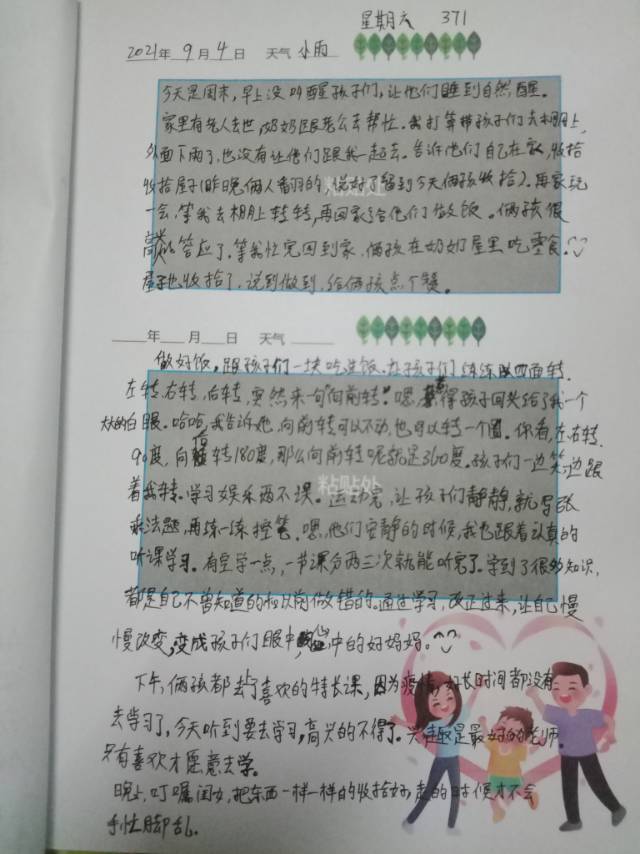 星期六 371
2021年 9月 4日 天气 小雨
今天是周末，早上没叫醒孩子们，让他们睡到自然醒。
家里有老人去世，奶奶跟老公去帮忙。我打算带孩子们去棚上，
外面下雨了，也没有让他们跟我一起去。告诉他们自己在家，收拾
收拾屋子(昨晚俩人翻的，说好了留到今天俩孩收拾)。再家玩
粘贴处
一会，等我去棚上转转，再回家给他们做饭。俩孩很
高兴答应了。等我忙完回到家，俩孩在奶奶屋里吃零食。
屋子也收拾了，说到做到，给俩孩点个赞。
年 月 日 天气
做好饭，跟孩子们一块吃过饭，在孩子们练练四面转，
左转，右转，后转，突然来一句"向前转"。嗯，惹得孩子回头给了我一个
大大的白眼。哈哈，我告诉他，向前转可以不动，也可以转一个圈。你看，左，右转，
90度，向后转180度，那么向前转呢就是360度。孩子们一边笑一边跟
粘贴处
着我转。学习娱乐两不误。运动完，让孩子们静静，就写张
乘法题，再练一练控笔。嗯，他们安静的时候，我也跟着认真的
听课学习。有空学一点，一节课分两三次就能听完了。学到了很多知识，
都是自己不曾知道的和以前做错的。通过学习，改正过来，让自己慢
慢改变，变成孩子们眼中，心中的好妈妈。
下午，俩孩都去了喜欢的特长课，因为疫情，好长时间都没有
去学习了，今天听到要去学习，高兴的不得了。兴趣是最好的老师
只有喜欢才愿意去学。
晚上，叮嘱闺女，把东西一样一样的收拾好，走的时候才不会
手忙脚乱。